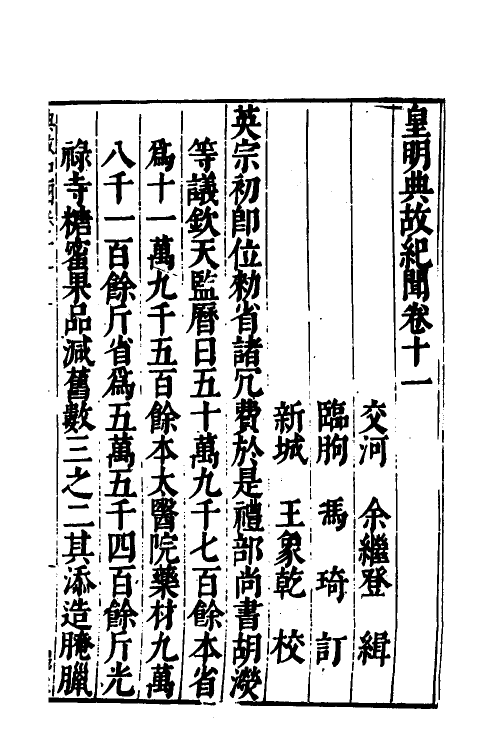 皇明典故紀聞卷十一
交河 余繼登 緝
臨朐 馮琦 訂
新城 王象乾 校
英宗初卽位勑省諸冗費於是禮部尚書胡濙
等議欽天監曆日五十萬九千七百餘本省
爲十一萬九千五百餘本太醫院藥材九萬
八千一百餘斤省爲五萬五千四百餘斤光
祿寺糖蜜果品減舊數三之二其添造腌臘